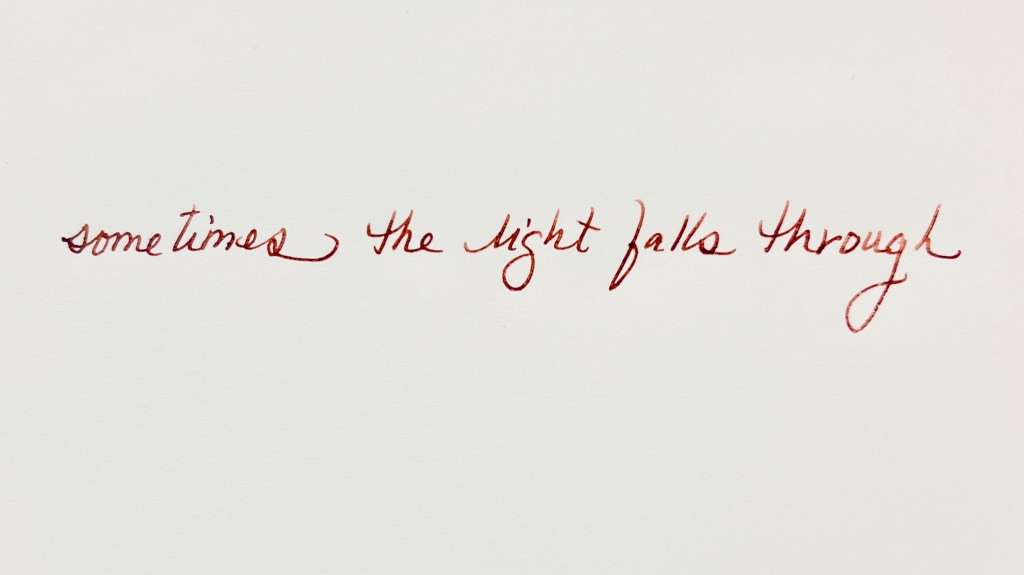 sometimes the light falls through